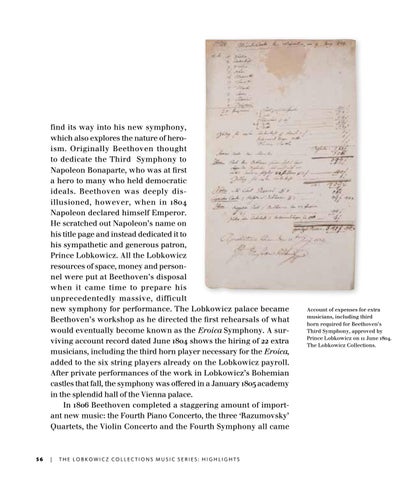 find its way into his new symphony,
which also explores the nature of hero-
ism. Originally Beethoven thought
to dedicate the Third Symphony to
Napoleon Bonaparte, who was at first
a hero to many who held democratic
ideals. Beethoven was deeply dis-
illusioned, however, when in 1804
Napoleon declared himself Emperor.
He scratched out Napoleon's name on
his title page and instead dedicated it to
his sympathetic and generous patron,
Prince Lobkowicz. All the Lobkowicz
resources of space, money and person-
nel were put at Beethoven's disposal
when it came time to prepare his
unprecedentedly massive, difficult
new symphony for performance. The Lobkowicz palace became
Beethoven's workshop as he directed the first rehearsals of what
would eventually become known as the Eroica Symphony. A sur-
viving account record dated June 1804 shows the hiring of 22 extra
musicians, including the third horn player necessary for the Eroica,
added to the six string players already on the Lobkowicz payroll.
After private performances of the work in Lobkowicz's Bohemian
castles that fall, the symphony was offered in a January 1805 academy
in the splendid hall of the Vienna palace.
In 1806 Beethoven completed a staggering amount of import-
ant new music: the Fourth Piano Concerto, the three ‘Razumovsky’
Quartets, the Violin Concerto and the Fourth Symphony all came
Account of expenses for extra
musicians, including third
horn required for Beethoven's
Third Symphony, approved by
Prince Lobkowicz on 11 June 1804.
The Lobkowicz Collections.
56 | THE LOBKOWICZ COLLECTIONS MUSIC SERIES: HIGHLIGHTS